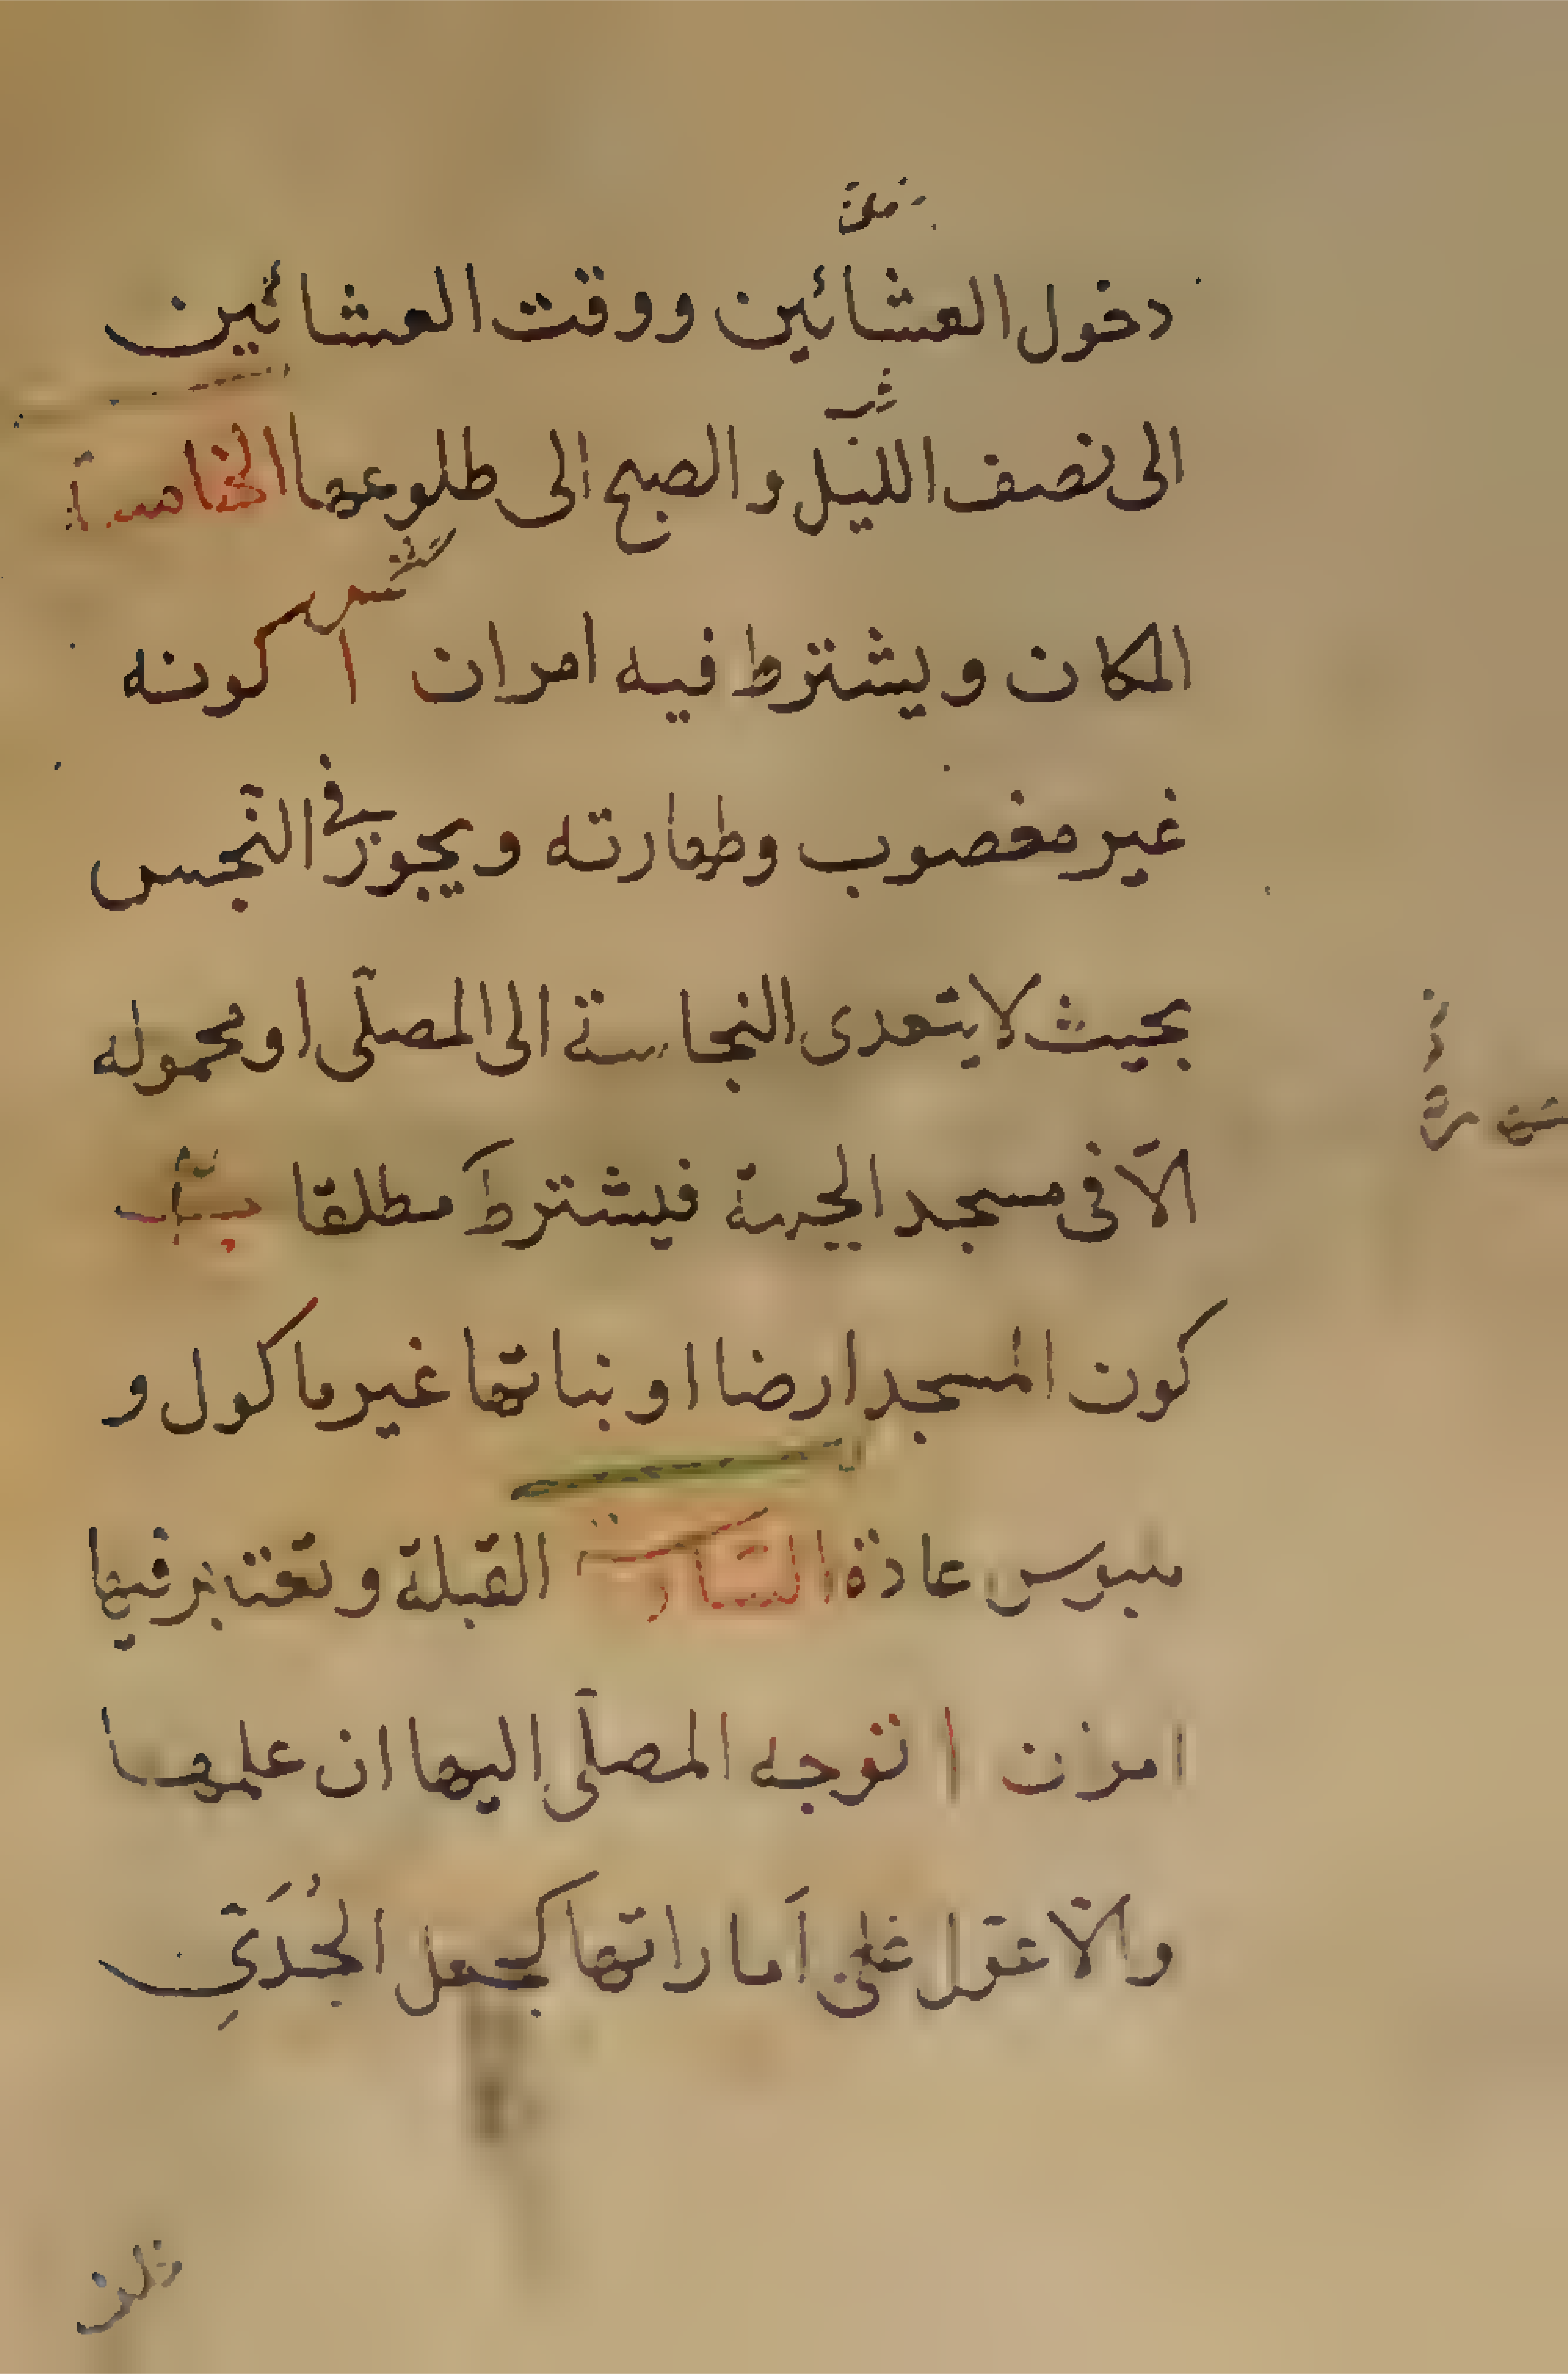 دخول العشائين ووقت العشائين
الى نصف الليل والصبح الى طلوعها الخامسة
شمس
المكان ويشترط فيه امران ا كونه
غير مغصوب وطهارته ويجوز في النجس
بحيث لا يتعدى النجاسة الى المصلّى او محموله
الّا فى مسجد الجبهة فيشترط مطلقا ب
كون المسجد ارضا او نباتها غير ماكول و
ملبوس عادة السّادسة القبلة وتعتبر فيها
امران ا توجه المصلّى اليها ان علمها
والّا عوّل على اَماراتها كجعل الجُدَيّ